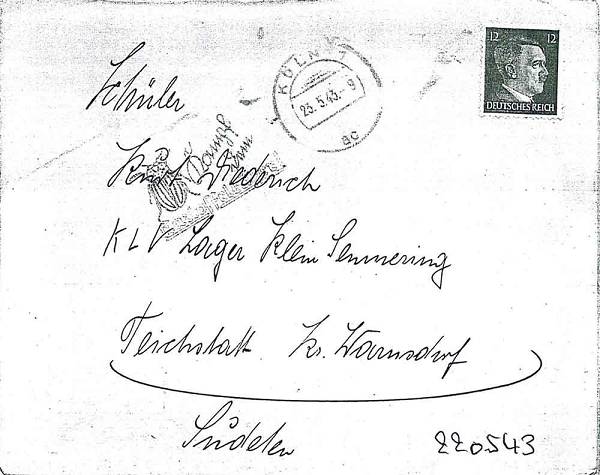 12 12
DEUTSCHES REICH
KÖLN
23.5.43.-9
ac
Schüler
Kampf
dem
Diederich
KLV Lager Klein Semmering
Teichstatt Kr. Warnsdorf
Sudeten
220543